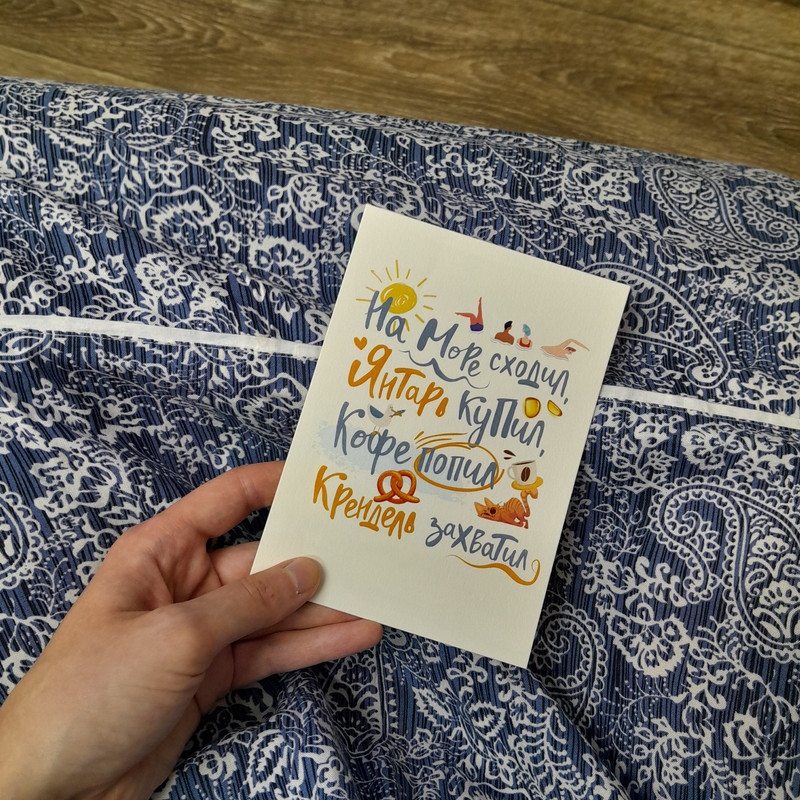 На Море сходил,
Янтарь купил,
Кофе попил
Крендель захватил